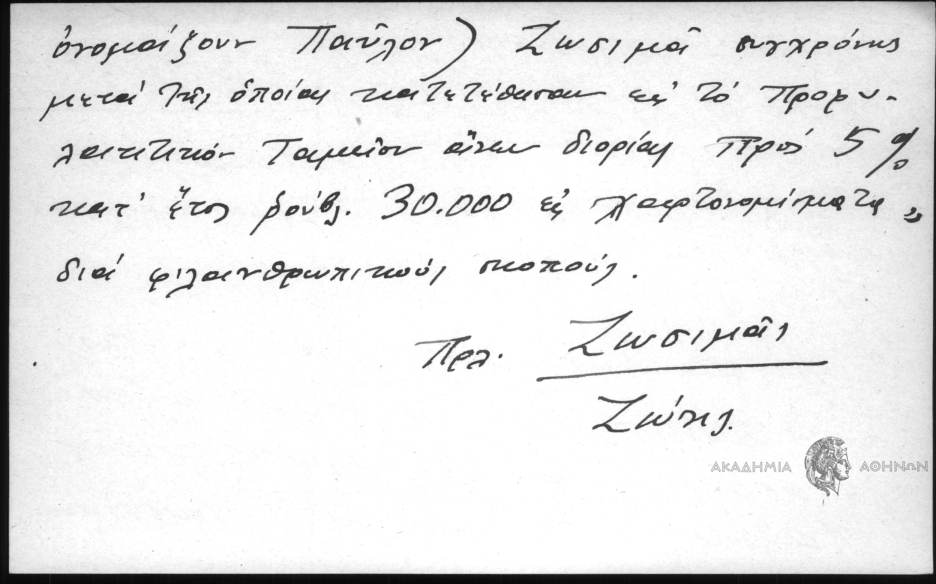 ὀνομάζουν Παῦλον) Ζωσιμᾶ συγχρόνως
μετά τῆς ὁποίας κατετέθησαν εἰς τό Προφυ-
λακτικόν Ταμεῖον ἄνευ διορίας πρός 5%
κατ' ἔτος ῥούβλ. 30.000 εἰς χαρτονομίσματα „
διά φιλανθρωπικούς σκοπούς.
Πρλ. Ζωσιμᾶς
Ζώης.
ΑΚΑΔΗΜΙΑ ΑΘΗΝΩΝ